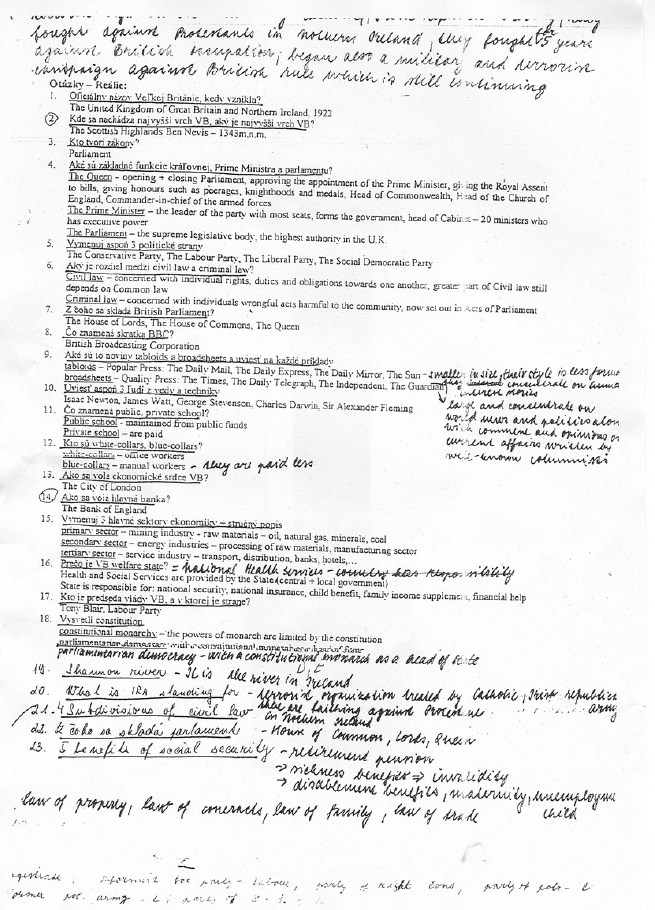 fought against Protestants in Nothern Ireland, they fought 75 years
against British occupation; began also a military and terrorist
campaign against British rule which is still continuing
Otázky – Reálie:
1. Oficiálny názov Veľkej Británie, kedy vznikla?
The United Kingdom of Great Britain and Northern Ireland, 1922
2. Kde sa nachádza najvyšší vrch VB, aký je najvyšší vrch VB?
The Scottish Highlands Ben Nevis – 1343m.n.m.
3. Kto tvorí zákony?
Parliament
4. Aké sú základné funkcie kráľovnej, Prime Ministra a parlamentu?
The Queen - opening + closing Parliament, approving the appointment of the Prime Minister, giving the Royal Assent
to bills, giving honours such as peerages, knighthoods and medals, Head of Commonwealth, Head of the Church of
England, Commander-in-chief of the armed forces
The Prime Minister – the leader of the party with most seats, forms the government, head of Cabinet – 20 ministers who
has executive power
The Parliament – the supreme legislative body, the highest authority in the U.K.
5. Vymenuj aspoň 3 politické strany
The Conservative Party, The Labour Party, The Liberal Party, The Social Democratic Party
6. Aký je rozdiel medzi civil law a criminal law?
Civil law – concerned with individual rights, duties and obligations towards one another, greater part of Civil law still
depends on Common law
Criminal law – concerned with individuals wrongful acts harmful to the community, now set out in Acts of Parliament
7. Z čoho sa skladá British Parliament?
The House of Lords, The House of Commons, The Queen
8. Čo znamená skratka BBC?
British Broadcasting Corporation
9. Aké sú to noviny tabloids a broadsheets a uviesť na každé príklady
tabloids – Popular Press: The Daily Mail, The Daily Express, The Daily Mirror, The Sun - smaller in size, their style is less formal
broadsheets – Quality Press: The Times, The Daily Telegraph, The Independent, The Guardian they concentrate on human
interest stories
10. Uviesť aspoň 3 ľudí z vedy a techniky
Isaac Newton, James Watt, George Stevenson, Charles Darwin, Sir Alexander Fleming
large and concentrate on
world news and politics along
with comment and opinions on
current affairs written by
well-known columnists
11. Čo znamená public, private school?
Public school - maintained from public funds
Private school – are paid
12. Kto sú white-collars, blue-collars?
white-collars – office workers
blue-collars – manual workers - they are paid less
13. Ako sa volá ekonomické srdce VB?
The City of London
14. Ako sa volá hlavná banka?
The Bank of England
15. Vymenuj 3 hlavné sektory ekonomiky – stručný popis
primary sector – mining industry - raw materials – oil, natural gas, minerals, coal
secondary sector – energy industries – processing of raw materials, manufacturing sector
tertiary sector – service industry – transport, distribution, banks, hotels,...
16. Prečo je VB welfare state? = National Health Services - country has responsibility
Health and Social Services are provided by the State(central + local government)
State is responsible for: national security, national insurance, child benefit, family income supplement, financial help
17. Kto je predseda vlády VB, a v ktorej je strane?
Tony Blair, Labour Party
18. Vysvetli constitution
constitutional monarchy – the powers of monarch are limited by the constitution
parliamentarian democracy - with a constitutional monarch as a head of state
19. Shannon river - It is the river in Ireland
20. What is IRA standing for - terrorist organization created by Catholic, Irish republican army
there are fighting against Protestant
in Nothern Ireland
21. 4 Subdivisions of civil law
22. Z čoho sa skladá parlament - House of Common, Lords, Queen
23. 5 benefits of social security - retirement pension
→ sickness benefits → invalidity
→ disablement benefits, maternity, unemployment
child
law of property, law of contracts, law of family, law of trade